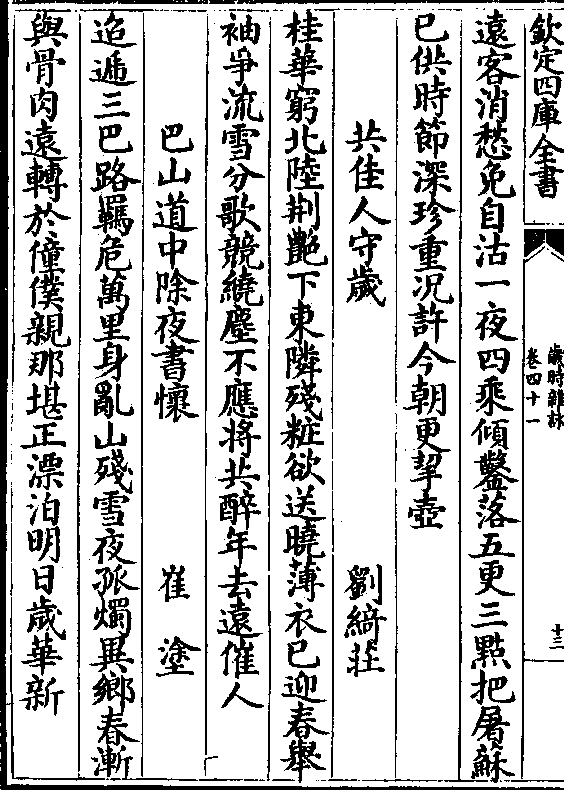 欽定四庫全書
歳時雜詠
卷四十一
十三
遠客消愁免自沽一夜四乘傾鑿落五更三點把屠蘇
已供時節深珍重况許今朝更挈壺
共佳人守歲 劉綺莊
桂華窮北陸荆艷下東隣殘粧欲送曉薄衣已迎春舉
袖爭流雪分歌競繞塵不應將共醉年去遠催人
巴山道中除夜書懷 崔塗
迢遞三巴路羈危萬里身亂山殘雪夜孤燭異鄉春漸
與骨肉遠轉於僮僕親那堪正漂泊明日歲華新